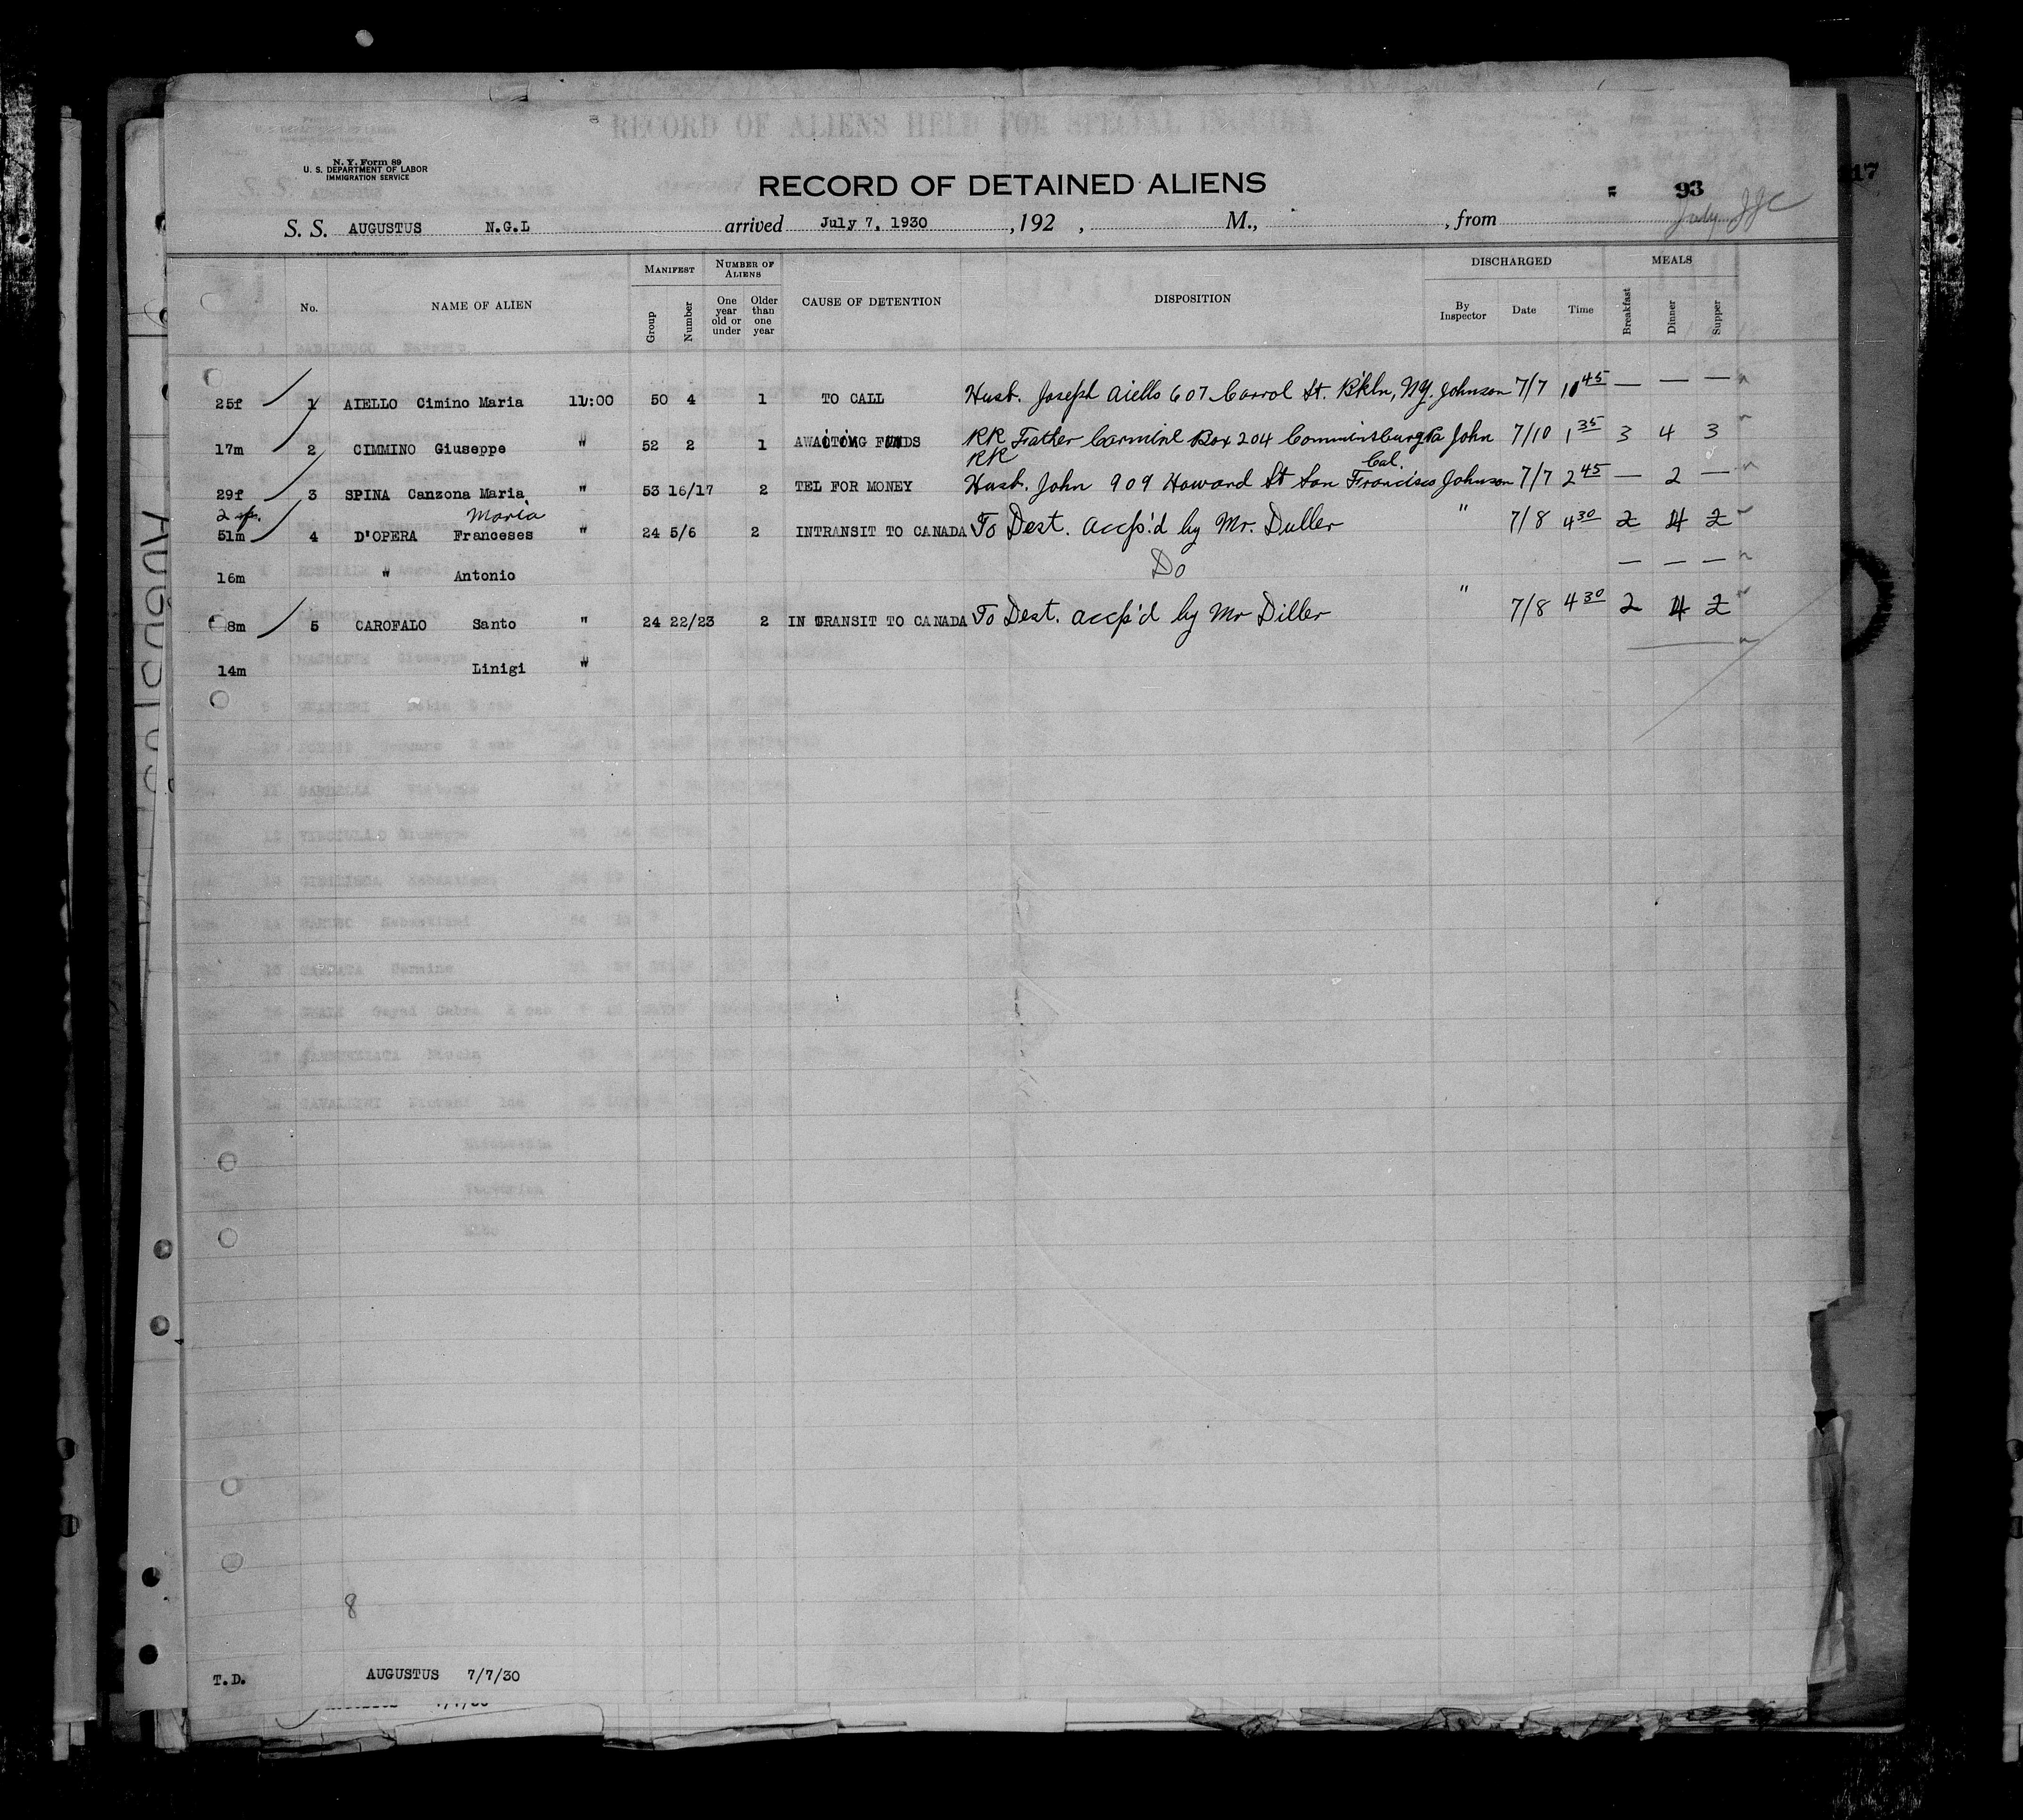 N. Y. Form 89
U. S. DEPARTMENT OF LABOR
IMMIGRATION SERVICE
RECORD OF ALIENS HELD FOR SPECIAL INQUIRY
RECORD OF DETAINED ALIENS
93
17
S. S. AUGUSTUS N.G.L arrived July 7, 1930 , 192 , M., , from July JJC
No. NAME OF ALIEN MANIFEST Group Number NUMBER OF ALIENS One year old or under Older than one year CAUSE OF DETENTION DISPOSITION DISCHARGED By Inspector Date Time MEALS Breakfast Dinner Supper
25f 1 AIELLO Cimino Maria 11:00 50 4 1 TO CALL Husb. Joseph Aiello 607 Carrol St. Bkln, NY. Johnson 7/7 10 45 — — —
17m 2 CIMMINO Giuseppe " 52 2 1 AWAITING FUNDS RR Father Carmine Box 204 Pa John 7/10 1 35 3 4 3
RR
29f 3 SPINA Canzona Maria " 53 16/17 2 TEL FOR MONEY Husb. John 909 Howard St San Francisco Cal. Johnson 7/7 2 45 — 2 —
2 Maria
51m 4 D'OPERA Franceses " 24 5/6 2 INTRANSIT TO CANADA To Dest. accp'd by Mr. Duller " 7/8 4 30 2 4 2
16m " Antonio Do — — —
8m 5 CAROFALO Santo " 24 22/23 2 IN TRANSIT TO CANADA To Dest. accp'd by Mr Diller " 7/8 4 30 2 4 2
14m Linigi "
8
T.D. AUGUSTUS 7/7/30
AUGUSTUS